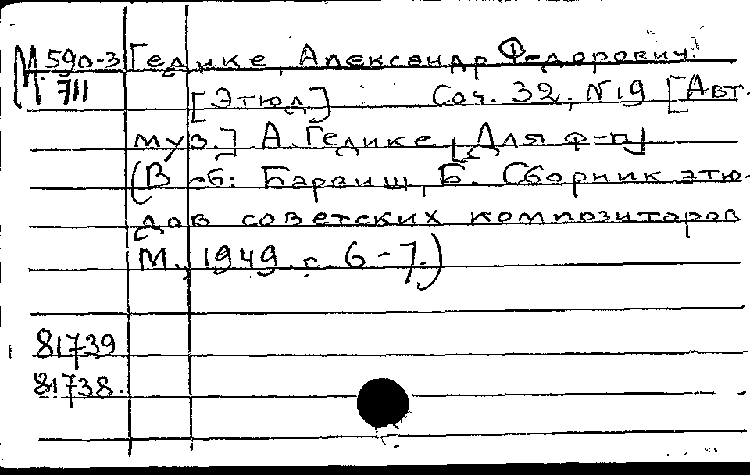 М 590-3 Гедике, Александр Федорович.
М 711 [Этюд] Соч. 32, №19 [Авт.
муз.] А. Гедике [Для ф-п]
(В сб: Барвиш, Б. Сборник этю-
дов советских композиторов
М., 1949 с 6-7.)
81739
81738.